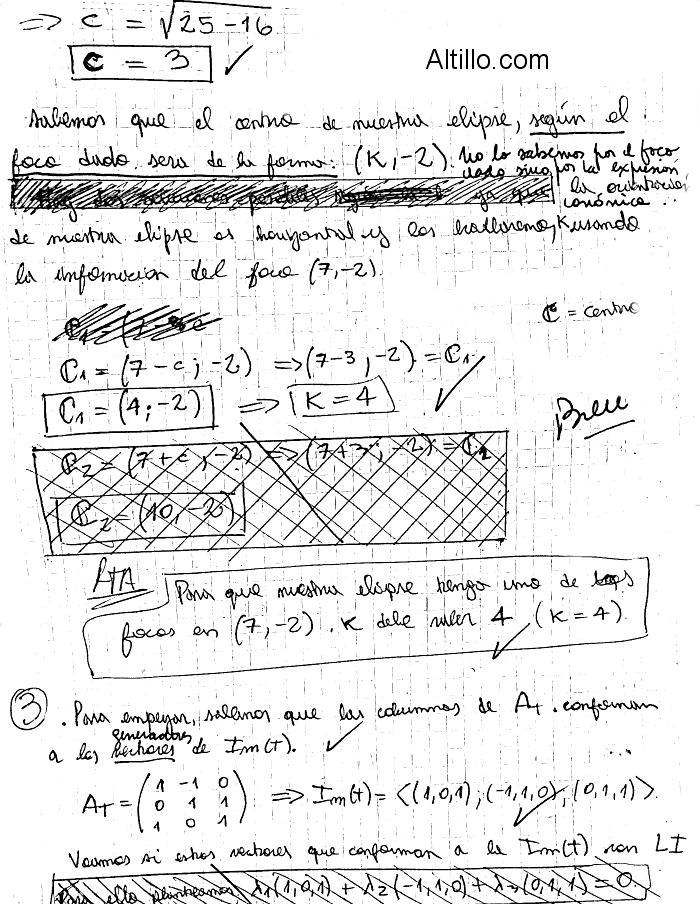 => c = √25-16
c = 3 ✓
Altillo.com
Sabemos que el centro de nuestra elipse, según el
foco dado sera de la forma: (K, -2).
No lo sabemos por el foco
dado sino por la expresión
canónica...
ya que la orientación
de nuestra elipse es horizontal y los hallaremos, usando
la informacion del foco (7,-2).
ℂ = centro
ℂ₁ = (7-c; -2) => (7-3, -2) = ℂ₁ ✓
ℂ₁ = (4;-2) => K = 4
Bien
ℂ₂ = (7+c; -2) => (7+3; -2) = ℂ₂
ℂ₂ = (10, -2)
RTA
Para que nuestra elipse tenga uno de sus
focos en (7,-2). K debe valer 4 (K=4). ✓
③ . Para empezar, sabemos que las columnas de A_T conforman
a los generadores de Im(t). ✓
vectores
...
A_T = (1 -1 0
0 1 1
1 0 1) => Im(t) = <(1,0,1); (-1,1,0), (0,1,1)>. ✓
Veamos si estos vectores que conforman a la Im(t) son LI
Para ello planteamos λ₁(1,0,1) + λ₂(-1,1,0) + λ₃(0,1,1) = 0.